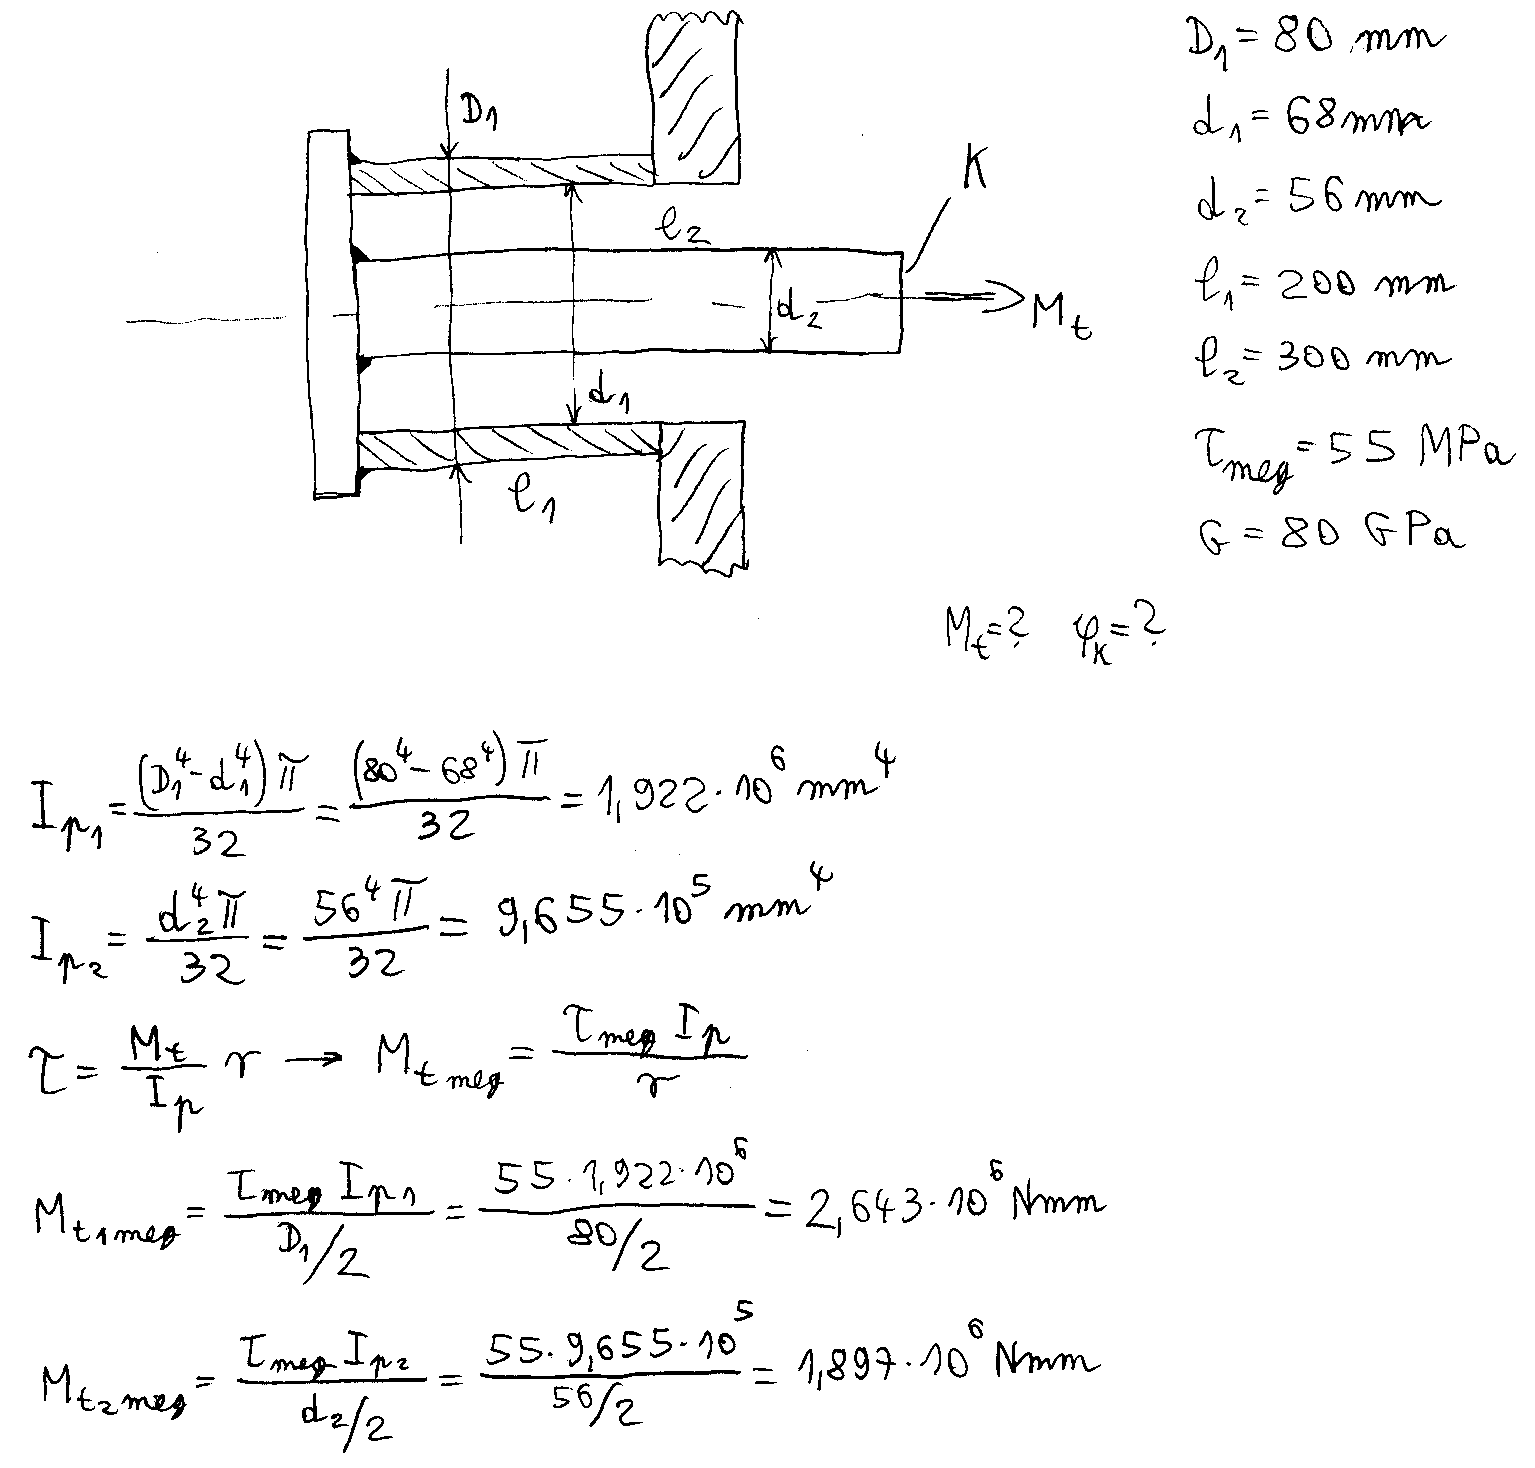 D₁
l₂
K
d₂
M_t
d₁
l₁
D₁ = 80 mm
d₁ = 68 mm
d₂ = 56 mm
l₁ = 200 mm
l₂ = 300 mm
τ_meg = 55 MPa
G = 80 GPa
M_t = ? φ_K = ?
I_p1 = (D₁⁴ - d₁⁴) π / 32 = (80⁴ - 68⁴) π / 32 = 1,922 · 10⁶ mm⁴
I_p2 = d₂⁴ π / 32 = 56⁴ π / 32 = 9,655 · 10⁵ mm⁴
τ = M_t / I_p r → M_t meg = τ_meg I_p / r
M_t1 meg = τ_meg I_p1 / D₁/2 = 55 · 1,922 · 10⁶ / 80/2 = 2,643 · 10⁶ Nmm
M_t2 meg = τ_meg I_p2 / d₂/2 = 55 · 9,655 · 10⁵ / 56/2 = 1,897 · 10⁶ Nmm